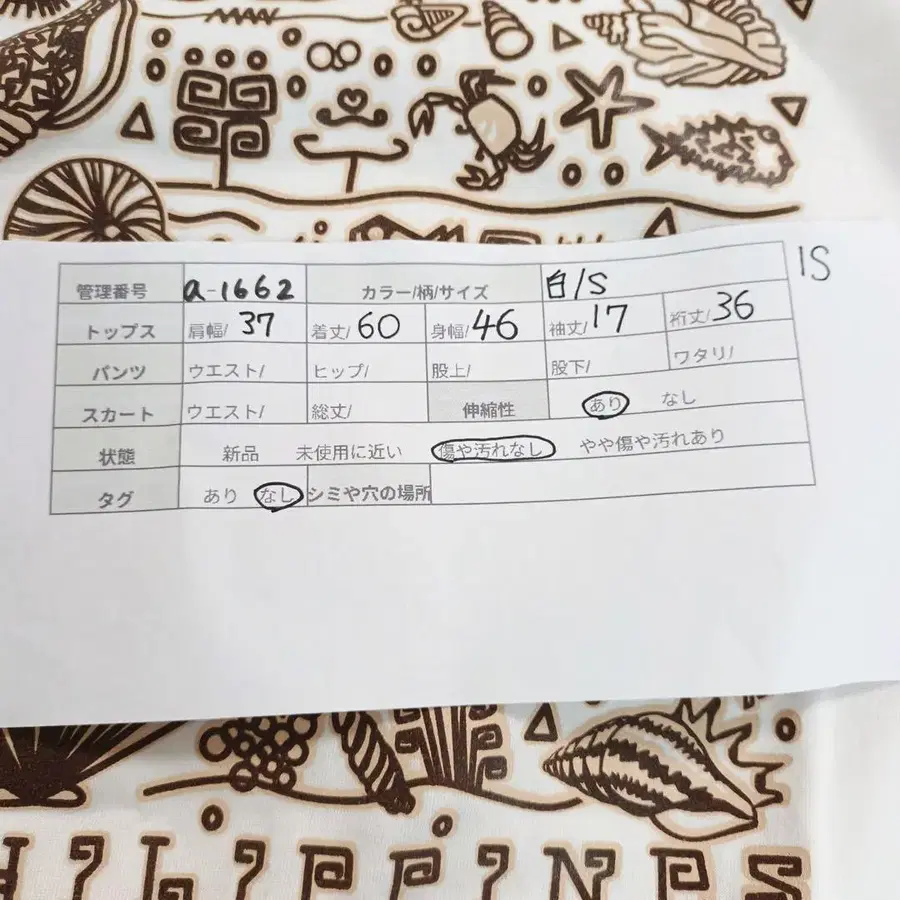 1S
管理番号 a-1662 カラー/柄/サイズ 白/S
トップス 肩幅/ 37 着丈/ 60 身幅/ 46 袖丈/ 17 裄丈/ 36
パンツ ウエスト/ ヒップ/ 股上/ 股下/ ワタリ/
スカート ウエスト/ 総丈/ 伸縮性 あり なし
状態 新品 未使用に近い 傷や汚れなし やや傷や汚れあり
タグ あり なし シミや穴の場所
HILIPPINES